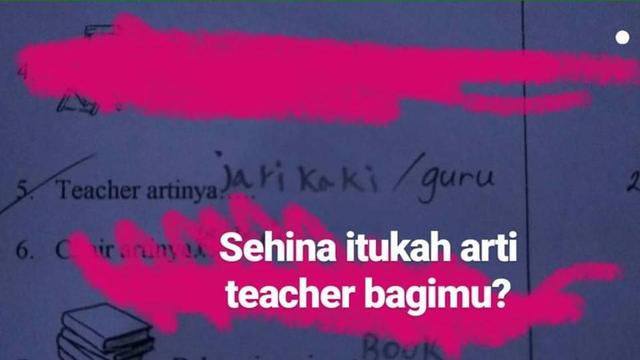 5. Teacher artinya..... jari kaki / guru
2
6. Chair artinya
Sehina itukah arti
teacher bagimu?
Book